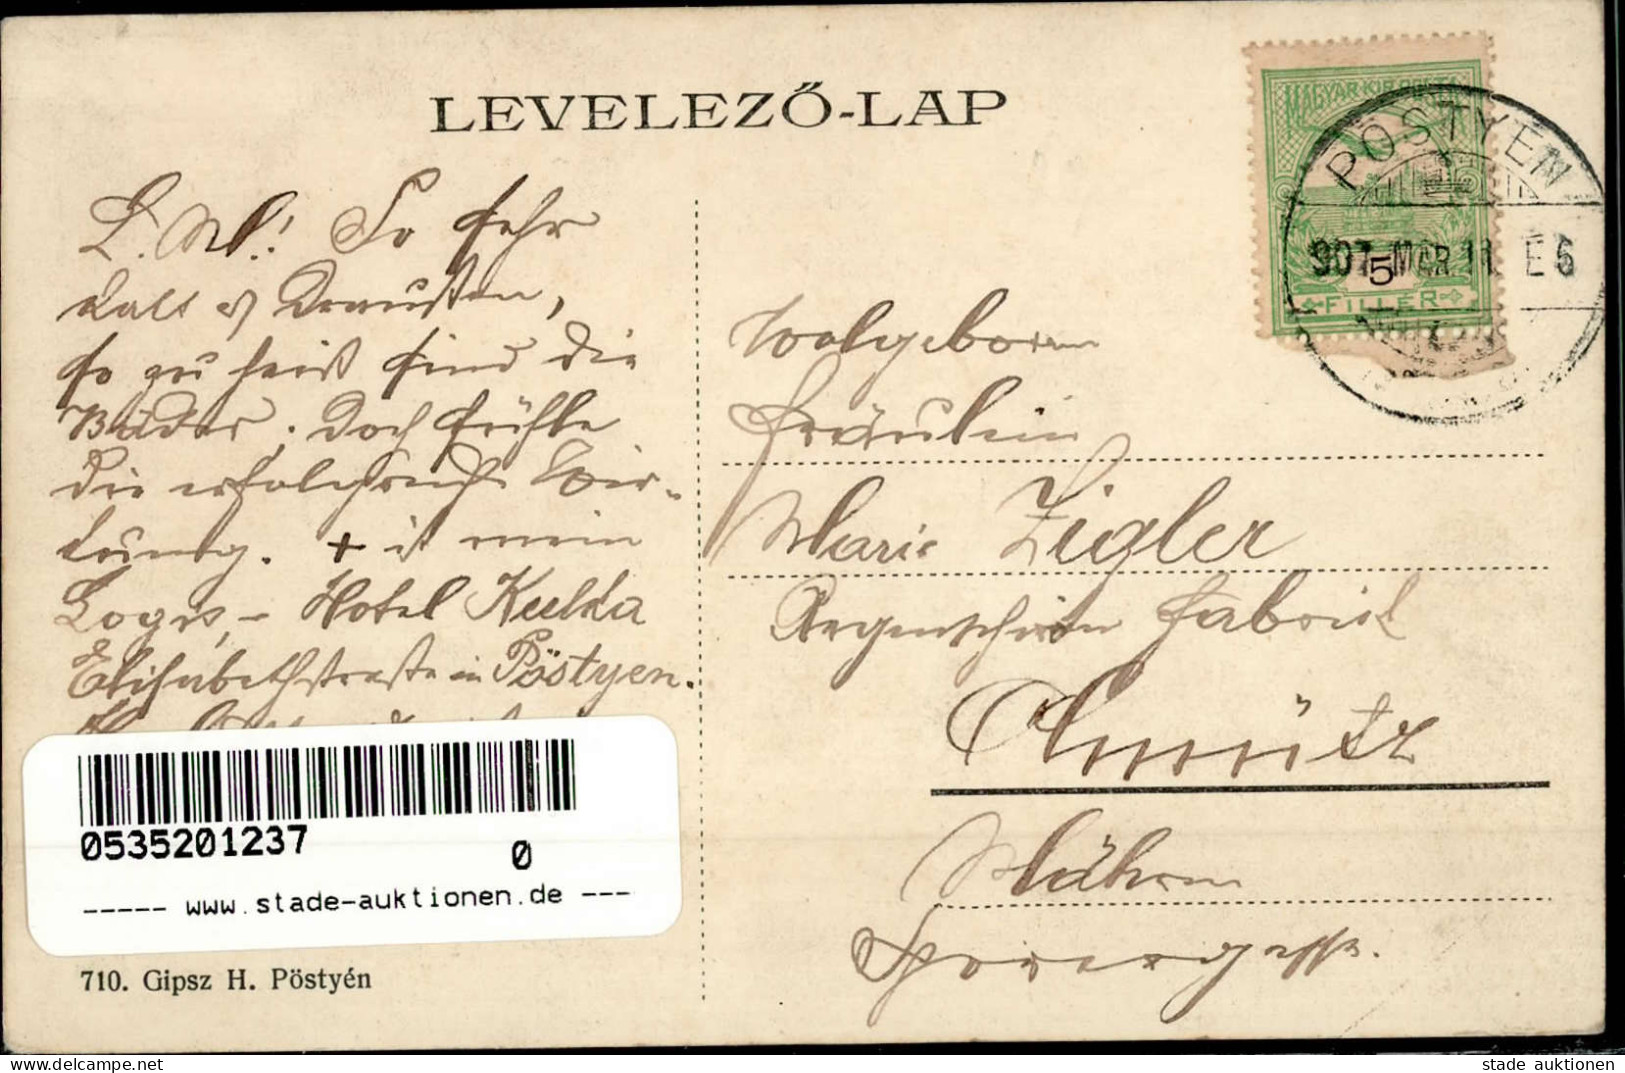 LEVELEZŐ-LAP
MAGYAR KIR. POSTA
PÖSTYÉN
907 MÁR 11. E 6
5
FILLÉR
L. M! So sehr
kalt es Draussen,
so zu heiß sind die
Bäder. Doch fühle
die erfolgreiche Wir-
kung. + is mein
Logis, – Hotel Kulka
Elisabethstrasse in Pöstyen.
Wolgeboren
Fräulein
Marie Zigler
Regenschirm Fabrik
Olmütz
Mähren
0535201237
0
----- www.stade-auktionen.de ---
710. Gipsz H. Pöstyén
stade auktionen